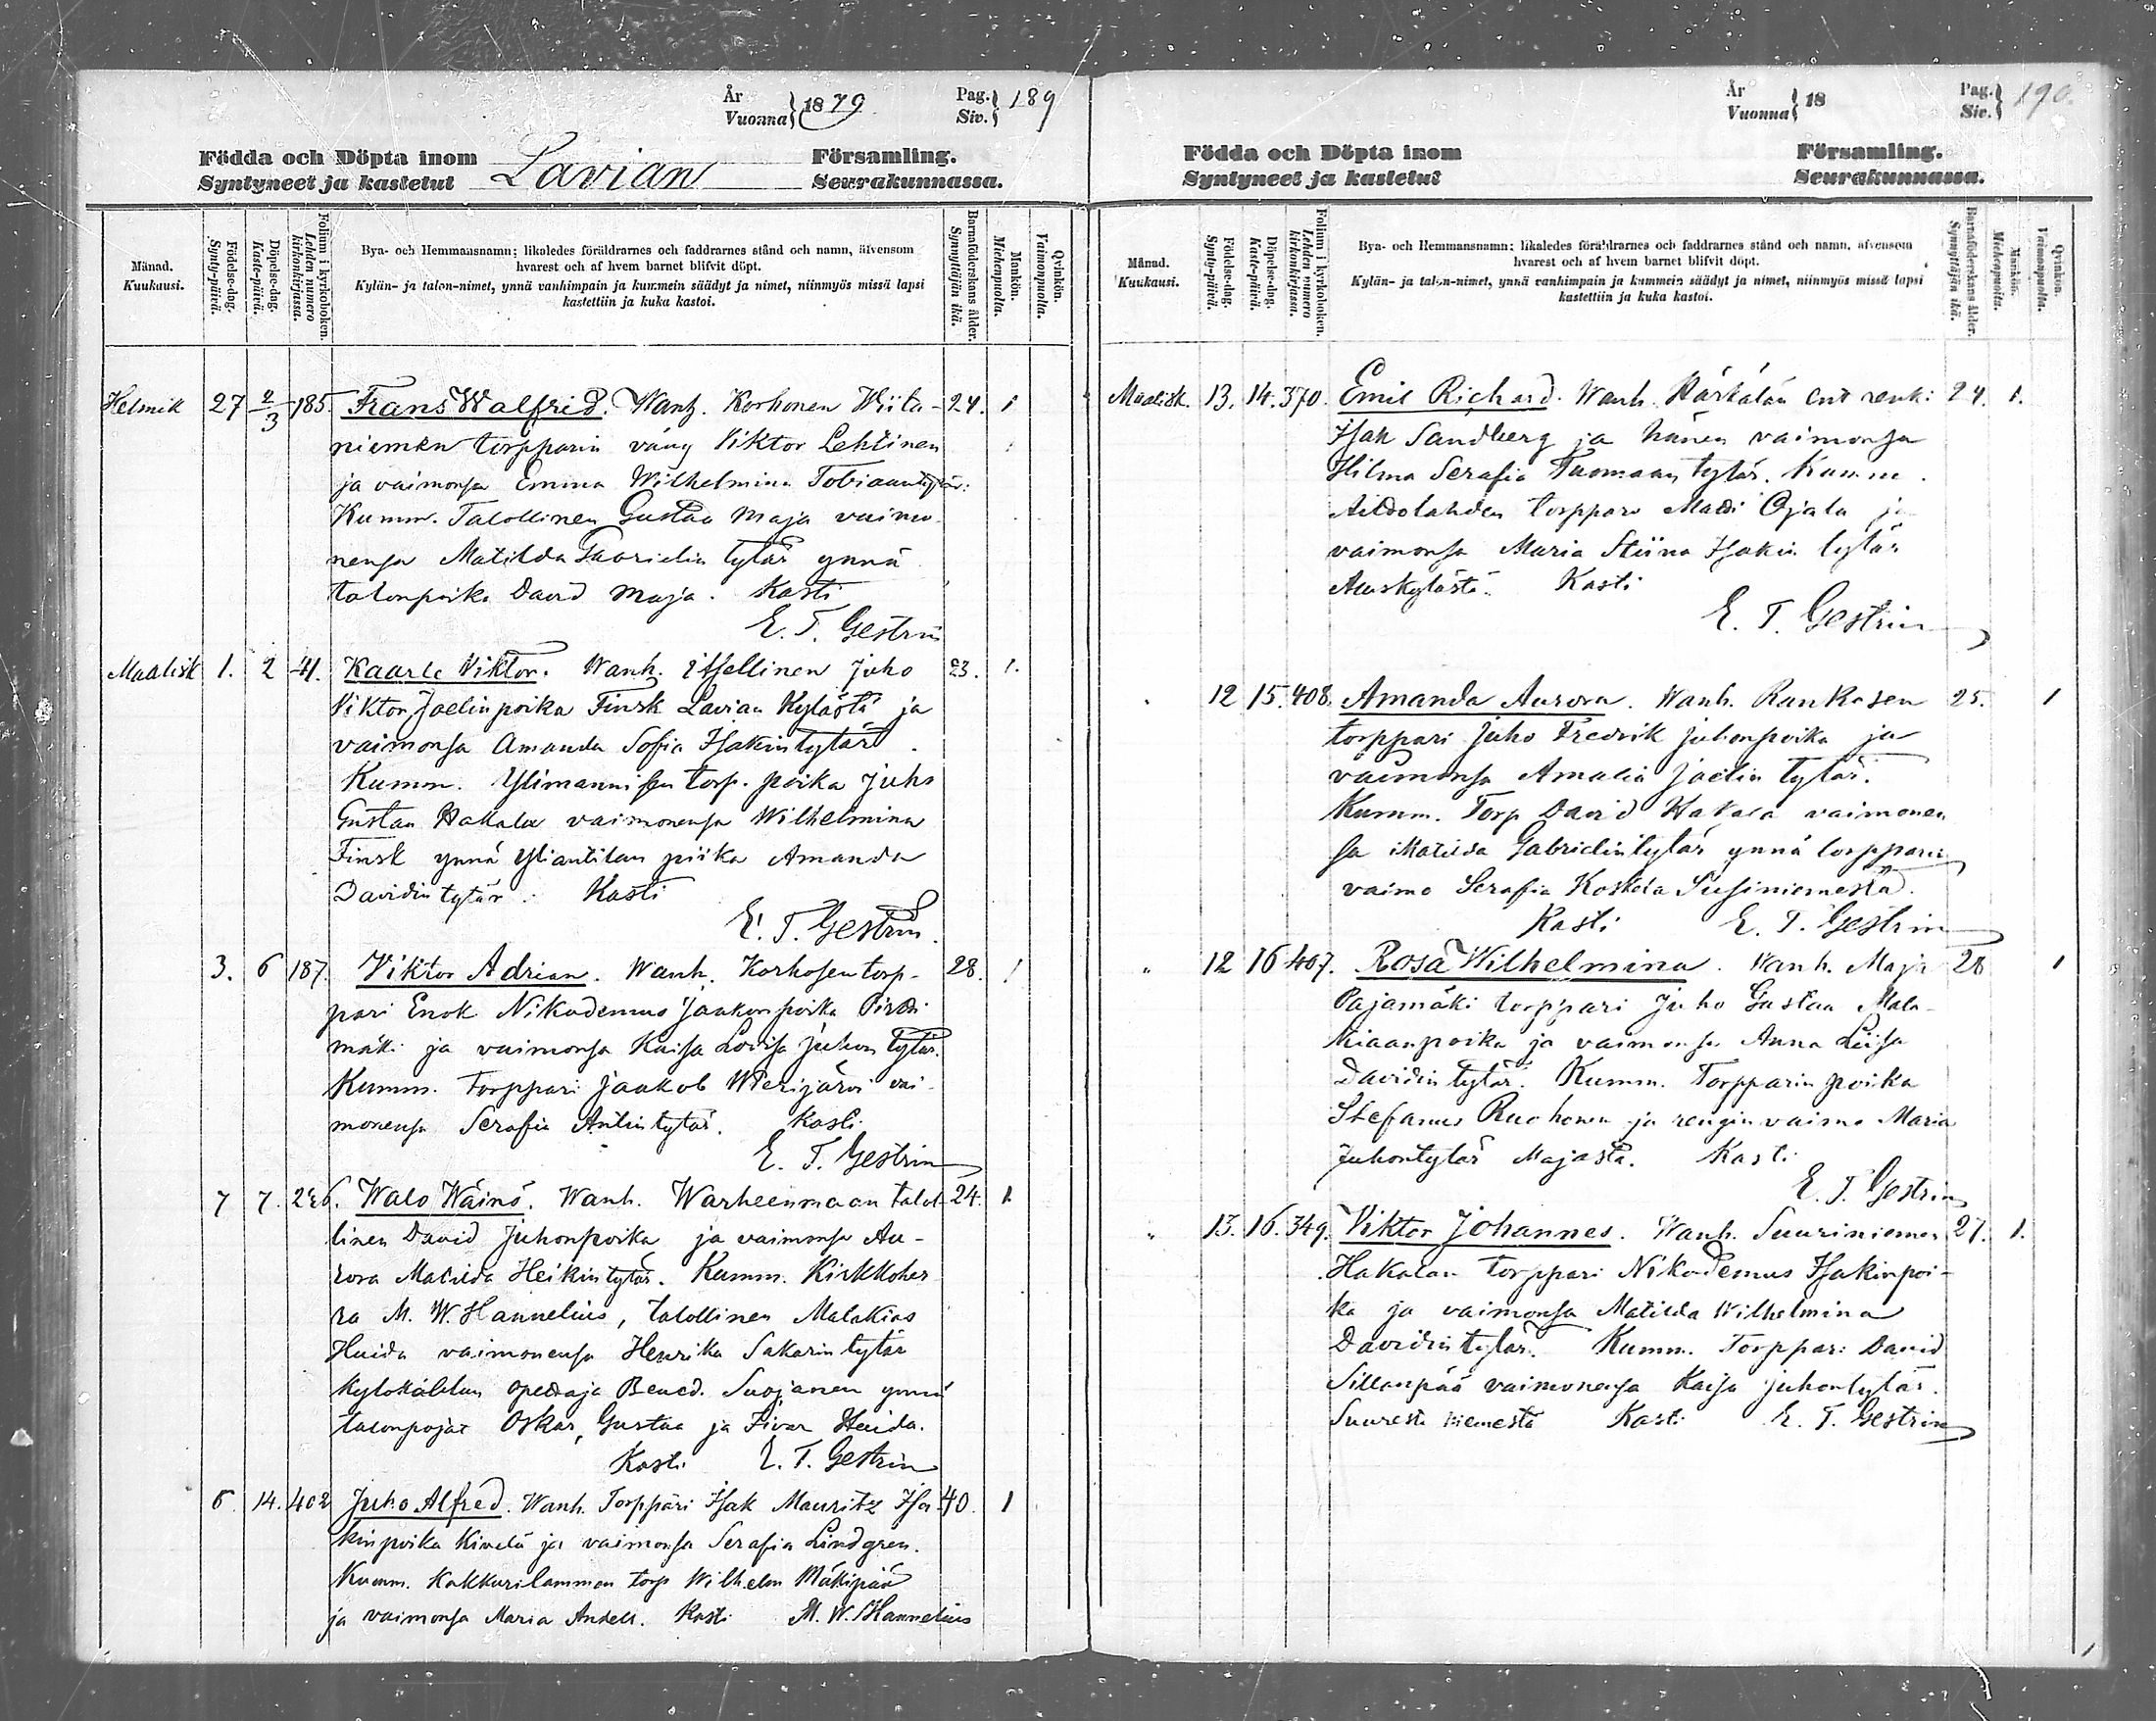 År
Vuonna } 1879.
Pag.
Siv. } 189
Födda och Döpta inom
Syntyneet ja kastetut
Lavian
Församling.
Seurakunnassa.
Månad.
Kuukausi.
Födelse-dag.
Synty-päivä.
Döpelse-dag.
Kaste-päivä.
Folium i kyrkoboken.
Lehden numero kirkonkirjassa.
Bya- och Hemmansnamn; likaledes föräldrarnes och faddrarnes stånd och namn, älvensom
hvarest och af hvem barnet blifvit döpt.
Kylän- ja talon-nimet, ynnä vanhimpain ja kummein säädyt ja nimet, niinmyös missä lapsi
kastettiin ja kuka kastoi.
Barnaföderskans ålder.
Synnyttäjän ikä.
Mankön.
Miehenpuolta.
Qvinkön.
Vaimonpuolta.
Helmik 27 2/3 185. Frans Walfrid. Wanh. Korhonen Wiita- 24. 1
niemen torpparin väug Viktor Lehtinen
ja vaimonsa Emma Wilhelmina Tobiaantytär.
Kumm. Talollinen Gustaa Maja vaimo
nensa Matilda Gaarielin tytär ynnä
talonpoika David Maja. Kasti
E. T. Gestrin
Maalisk 1. 2 41. Kaarle Viktor. Wanh. Itsellinen Juho 23. 1.
Viktor Joelinpoika Finsk Lavian Kylästä ja
vaimonsa Amanda Sofia Isakintytär.
Kumm. Ylimannisen torp. poika Juho
Gustaa Hakala vaimonensa Wilhelmina
Finsk ynnä Yliantilan piika Amanda
Davidin tytär. Kasti
E. T. Gestrin.
3. 6 187. Viktor Adrian. Wanh. Korhosen torp- 28. 1
pari Enok Nikodemus Jaakonpoika Pirtti
mäki ja vaimonsa Kaisa Lovisa Juhon tytär.
Kumm. Torppari Jaakob Wierijärvi vai-
monensa Serafia Antintytär. Kasti
E. T. Gestrin
7 7. 226. Walo Wäinö. Wanh. Warheenmaan talol- 24. 1.
linen David Juhonpoika ja vaimonsa Au-
rora Matilda Heikintytär. Kumm. Kirkkoher
ra M. W. Hannelius, talollinen Malakias
Huida vaimonensa Henrika Sakarin tytär
Kylokäläan opettaja Bened. Suojanen ynnä
talonpojat Oskar, Gustaa ja Iivar Huida.
Kasti E. T. Gestrin
6. 14. 402 Juho Alfred. Wanh. Torppari Isak Mauritz Isa- 40. 1
kinpoika Kivelä ja vaimonsa Serafia Lindgren.
Kumm. Kakkurilammen torp Wilhelm Mäkipää
ja vaimonsa Maria Andell. Kasti M. W. Hannelius
År
Vuonna } 18
Pag.
Siv. } 190.
Födda och Döpta inom
Syntyneet ja kastetut
Församling.
Seurakunnassa.
Månad.
Kuukausi.
Födelse-dag.
Synty-päivä.
Döpelse-dag.
Kaste-päivä.
Folium i kyrkoboken.
Lehden numero kirkonkirjassa.
Bya- och Hemmansnamn; likaledes föräldrarnes och faddrarnes stånd och namn, äfvensom
hvarest och af hvem barnet blifvit döpt.
Kylän- ja talon-nimet, ynnä vanhimpain ja kummein säädyt ja nimet, niinmyös missä lapsi
kastettiin ja kuka kastoi.
Barnaföderskans ålder.
Synnyttäjän ikä.
Mankön.
Miehenpuolta.
Qvinkön.
Vaimonpuolta.
Maalisk. 13. 14. 370. Emil Richard. Wanh. Härkälän ent renki 24. 1.
Isak Sandberg ja hänen vaimonsa
Hilma Serafia Tuomaan tytär. Kumm.
Aittolahden torppare Matti Ojala ja
vaimonsa Maria Stiina Isakin tytär
Auskylästä. Kasti
E. T. Gestrin
" 12 15. 408. Amanda Aurora. Wanh. Rankasen 25. 1
torppari Juho Fredrik Juhonpoika ja
vaimonsa Amalia Joelin tytär.
Kumm. Torp David Hakala vaimonen
sa Matilda Gabrielintytär ynnä torpparin
vaimo Serafia Koskela Susiniemestä.
Kasti E. T. Gestrin
" 12 16 407. Rosa Wilhelmina. Wanh. Maja 28 1
Pajamäki torppari Juho Gustaa Mala-
kiaanpoika ja vaimonsa Anna Liisa
Davidin tytär. Kumm. Torpparin poika
Stefanus Ruohonen ja rengin vaimo Maria
Juhontytär Majasta. Kasti
E. T. Gestrin
" 13. 16. 349. Viktor Johannes. Wanh. Suuriniemen 27. 1.
Hakalan torppari Nikodemus Isakinpoi-
ka ja vaimonsa Matilda Wilhelmina
Davidin tytär. Kumm. Torppari David
Sillanpää vaimonensa Kaisa Juhontytär.
Suuresta niemestä Kasti E. T. Gestrin